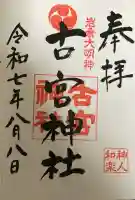 奉拝
岩倉大明神
古宮神社
令和七年八月八日
神人和楽